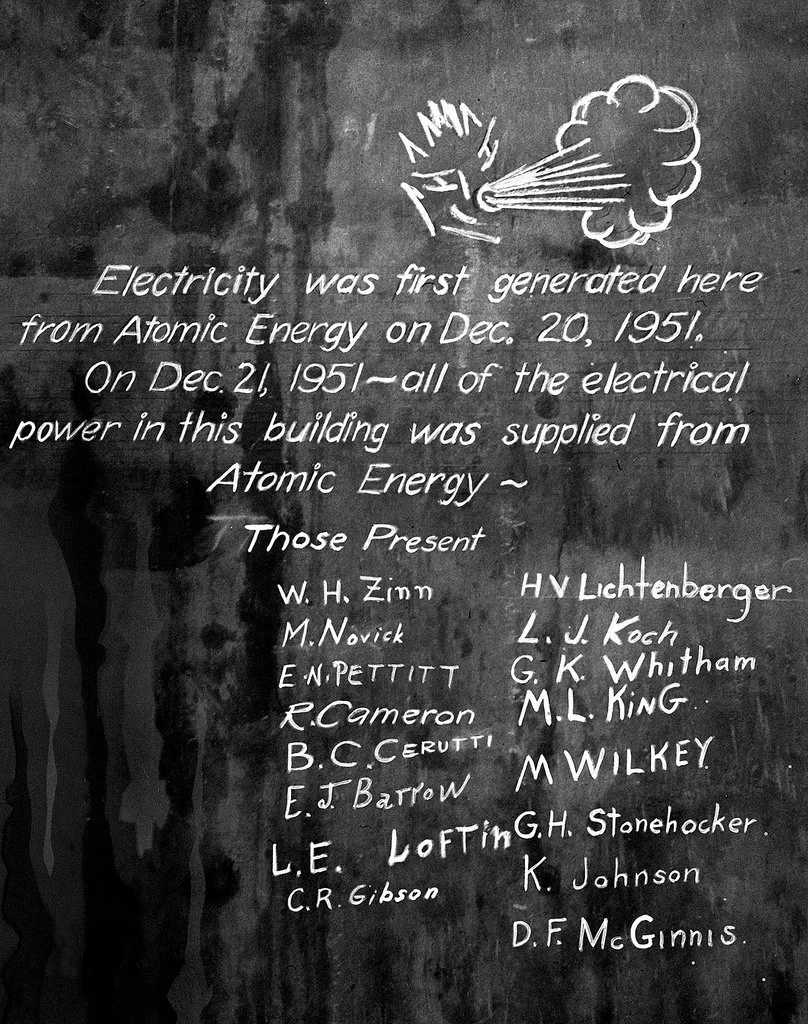 Electricity was first generated here
from Atomic Energy on Dec. 20, 1951.
On Dec. 21, 1951~all of the electrical
power in this building was supplied from
Atomic Energy ~
Those Present
W. H. Zinn
M. Novick
E.N. PETTITT
R. Cameron
B. C. CERUTTI
E. J. Barrow
L. E. LoFTin
C. R. Gibson
H V Lichtenberger
L. J. Koch
G. K. Whitham
M. L. KiNG
M WILKEY
G.H. Stonehocker.
K. Johnson
D. F. McGinnis.